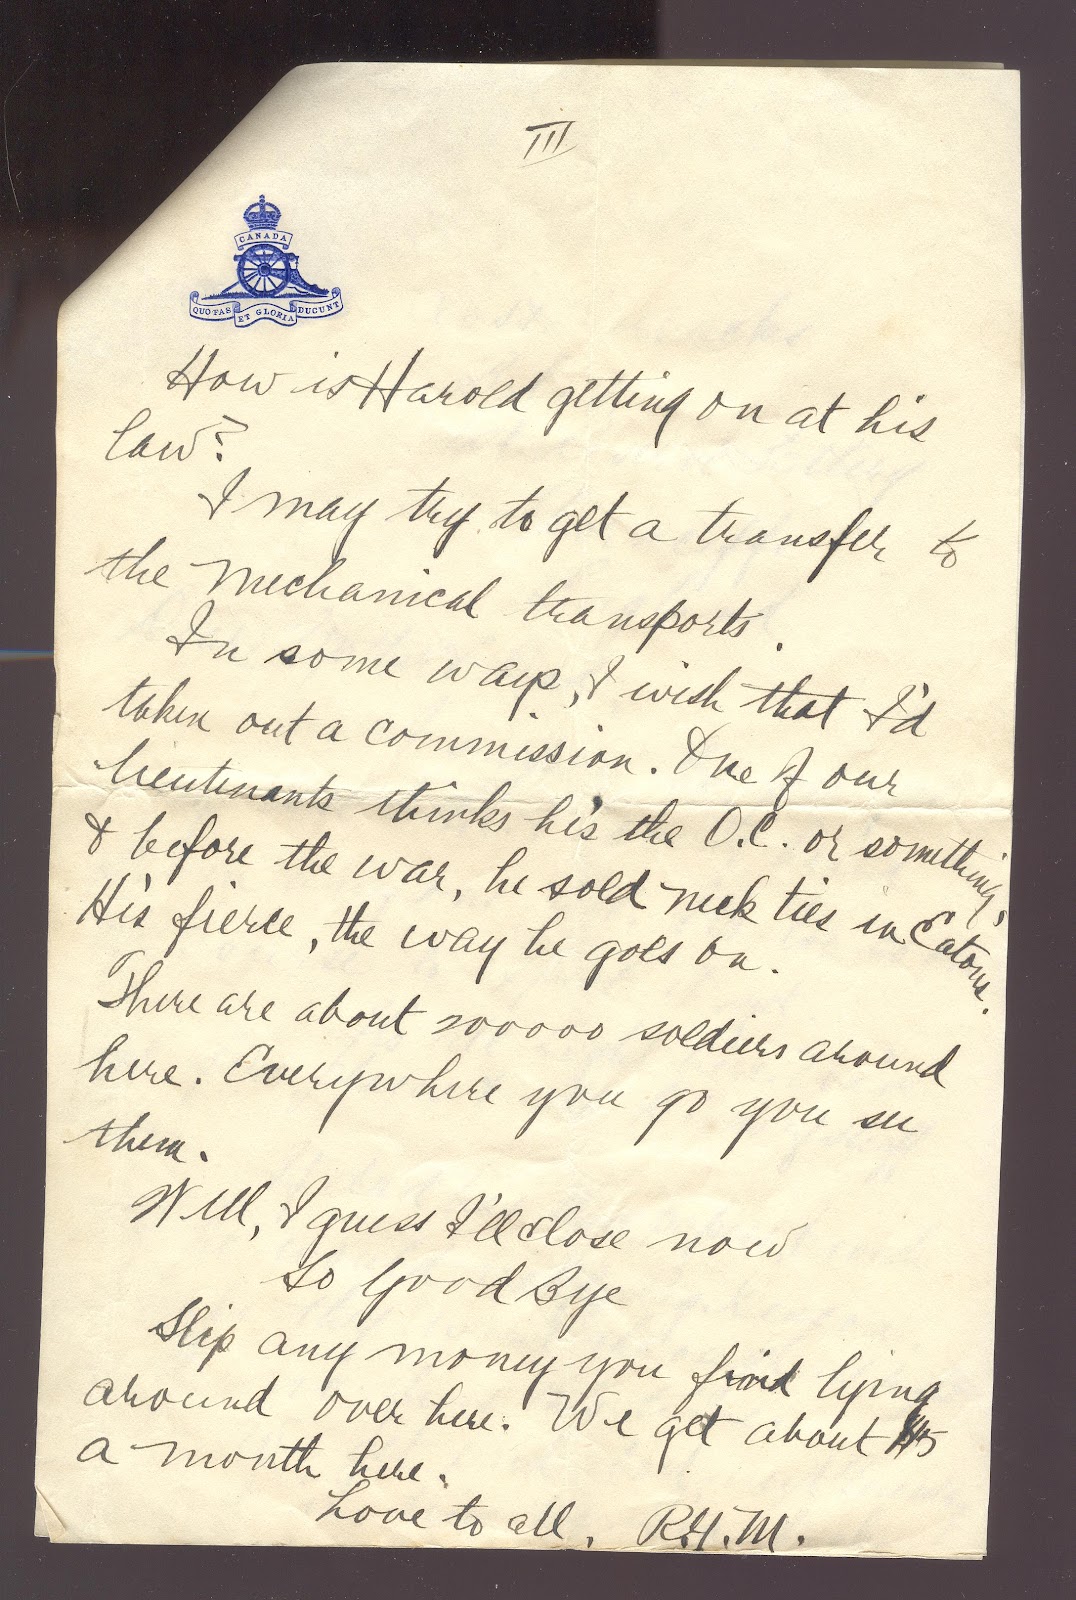 III
CANADA
QUO FAS ET GLORIA DUCUNT
How is Harold getting on at his
law?
I may try to get a transfer to
the mechanical transports.
In some ways, I wish that I'd
taken out a commission. One of our
lieutenants thinks he's the O.C. or something,
& before the war, he sold neck ties in Eatons.
His fierce, the way he goes on.
There are about 200000 soldiers around
here. Everywhere you go you see
them.
Well, I guess I'll close now
So Good Bye
Slip any money you find lying
around over here. We get about $15
a month here.
Love to all, R.H.M.